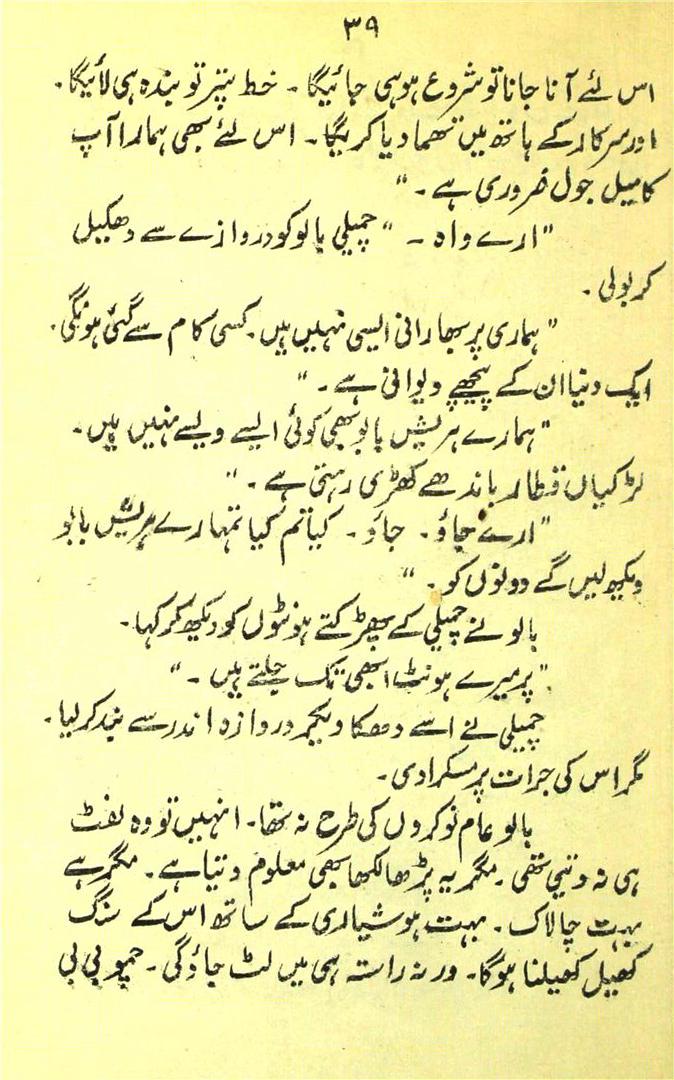 ۳۹
اس لئے آنا جانا تو شروع ہو ہی جائیگا ۔ خط پتر تو بندہ ہی لائیگا ۔
اور سرکار کے ہاتھ میں تھما دیا کریگا ۔ اس لئے بھی ہمارا آپ
کا میل جول ضروری ہے ۔ "
"ارے واہ ۔ " چمیلی بالو کو دروازے سے دھکیل
کر بولی ۔
"ہماری پربھا رانی ایسی نہیں ہیں ۔ کسی کام سے گئی ہونگی ۔
ایک دنیا ان کے پیچھے دیوانی ہے ۔ "
"ہمارے ہریش بابو بھی کوئی ایسے ویسے نہیں ہیں ۔
لڑکیاں قطار باندھے کھڑی رہتی ہے ۔ "
"ارے جاؤ ۔ جاؤ ۔ کیا تم کیا تمہارے ہریش بابو
دیکھ لیں گے دونوں کو ۔ "
بالو نے چمیلی کے پھڑکتے ہونٹوں کو دیکھ کر کہا ۔
"پر میرے ہونٹ ابھی تک جلتے ہیں ۔ "
چمیلی نے اسے دھکا دیکر دروازہ اندر سے بند کر لیا ۔
مگر اس کی جرات پر مسکرا دی ۔
بالو عام نوکروں کی طرح نہ تھا ۔ انہیں تو وہ لفٹ
ہی نہ دیتی تھی ۔ مگر یہ پڑھا لکھا بھی معلوم دیتا ہے ۔ مگر ہے
بہت چالاک ۔ بہت ہوشیاری کے ساتھ اس کے سنگ
کھیل کھیلنا ہوگا ۔ ورنہ راستہ ہی میں لٹ جاؤگی ۔ چمپو بی بی